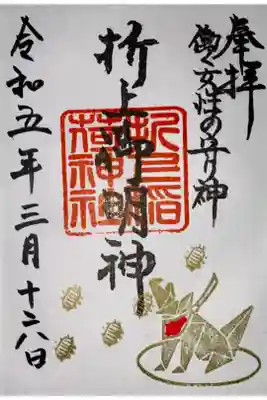 奉拝
働く女性の守神
折上稲荷神社
折上御明神
令和五年三月十六日